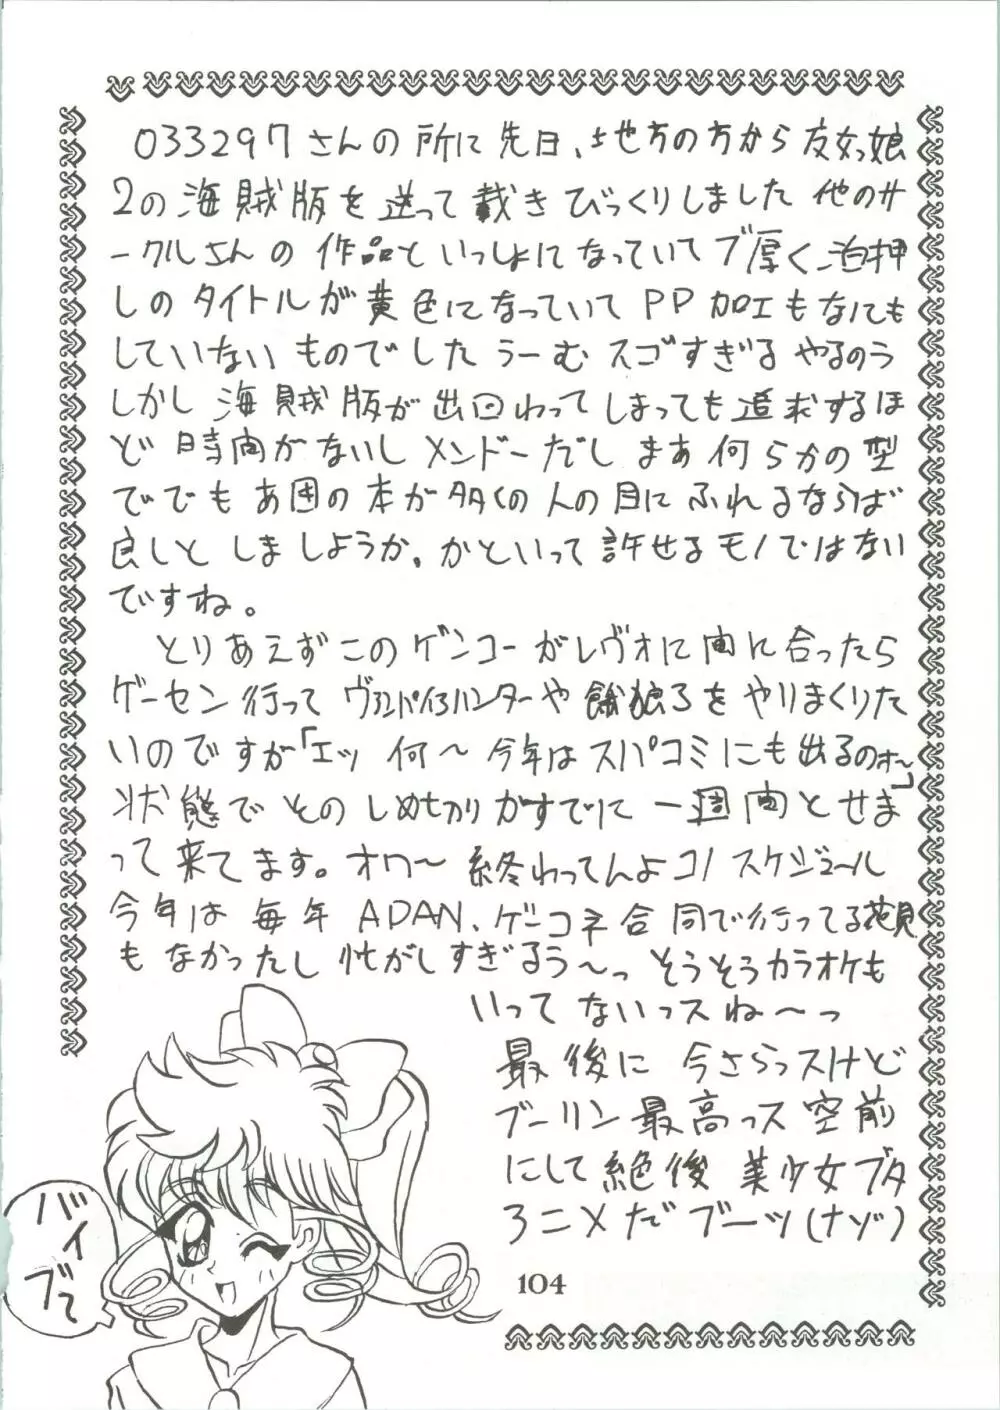 033297さんの所に先日、地方の方から友女っ娘
2の海賊版を送って戴きびっくりしました他のサ
ークルさんの作品といっしょになっていてブ厚く、泊押
しのタイトルが黄色になっていてPP加工もなにも
していないものでしたうーむスゴすぎるやるのう
しかし海賊版が出回わってしまっても追求するほ
ど時間がないしメンドーだしまあ何らかの型
ででもあ団の本が多くの人の目にふれるならば
良しとしましょうか。かといって許せるモノではない
ですね。
とりあえずこのゲンコーがレヴォに間に合ったら
ゲーセン行ってヴァンパイアハンターや餓狼3をやりまくりた
いのですが「エッ何〜今年はスパコミにも出るのォ〜」
状態でそのしめちりがすでに一週間とせま
って来てます。オワ〜終わってんよコノスケジュール
今年は毎年ADAN、ゲーコネ合同で行ってる花見
もなかったし忙がしすぎるう〜っそうそうカラオケも
いってないっスね〜っ
最後に今さらっスけど
ブーリン最高っス空前
にして絶後美少女ブタ
アニメだブーッ(ナゾ)
バイブて
104